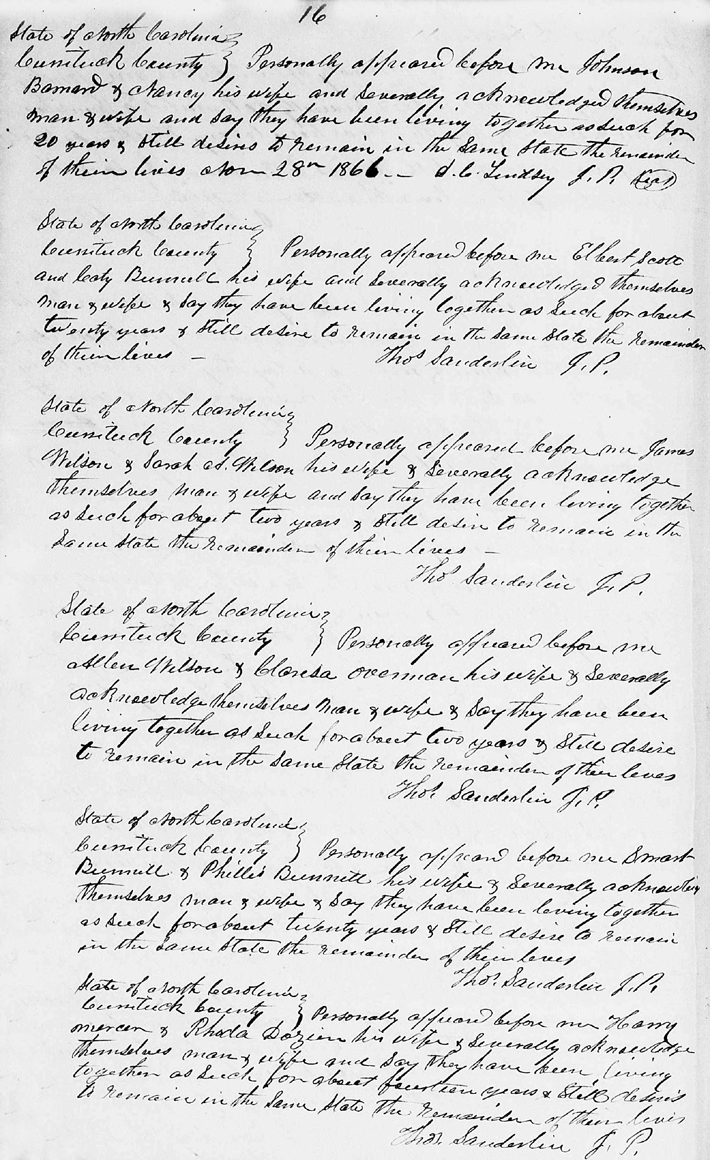 16
State of North Carolina
Currituck County } Personally appeared before me Johnson
Barnard & Nancy his wife and Severally, acknowledged themselves
man & wife and say they have been living together as such for
20 years & Still desires to remain in the Same State the remainder
of their lives Nov 28th 1866 — D. C. Lindsey J. P.
State of North Carolina
Currituck County } Personally appeared before me Elbert Scott
and Caty Bunnell his wife and Severally acknowledged themselves
man & wife & Say they have been living together as Such for about
twenty years & Still desire to remain in the Same State the remainder
of their lives — Thos Sanderlin J. P.
State of North Carolina
Currituck County } Personally appeared before me James
Wilson & Sarah A. Wilson his wife & Severally acknowledge
themselves man & wife and Say they have been living together
as Such for about two years & Still desire to remain in the
Same State the remainder of their lives —
Thos Sanderlin J. P.
State of North Carolina
Currituck County } Personally appeared before me
Allen Wilson & Claresa Overman his wife & Severally
acknowledge themselves man & wife & Say they have been
living together as Such for about two years & Still desire
to remain in the Same State the remainder of their lives
Thos Sanderlin J. P.
State of North Carolina
Currituck County } Personally appeard before me Smart
Bunnell & Phillis Bunnell his wife & Severally acknowledge
themselves man & wife & Say they have been living together
as Such for about twenty years & Still desire to remain
in the Same State the remainder of their lives
Thos Sanderlin J. P.
State of North Carolina
Currituck County } Personally appeared before me Harry
Mercer & Rhoda Dozier his wife & Severally acknowledge
themselves man & wife and Say they have been living
together as Such for about fourteen years & Still desires
to remain in the Same State the remainder of their lives
Thos Sanderlin J. P.